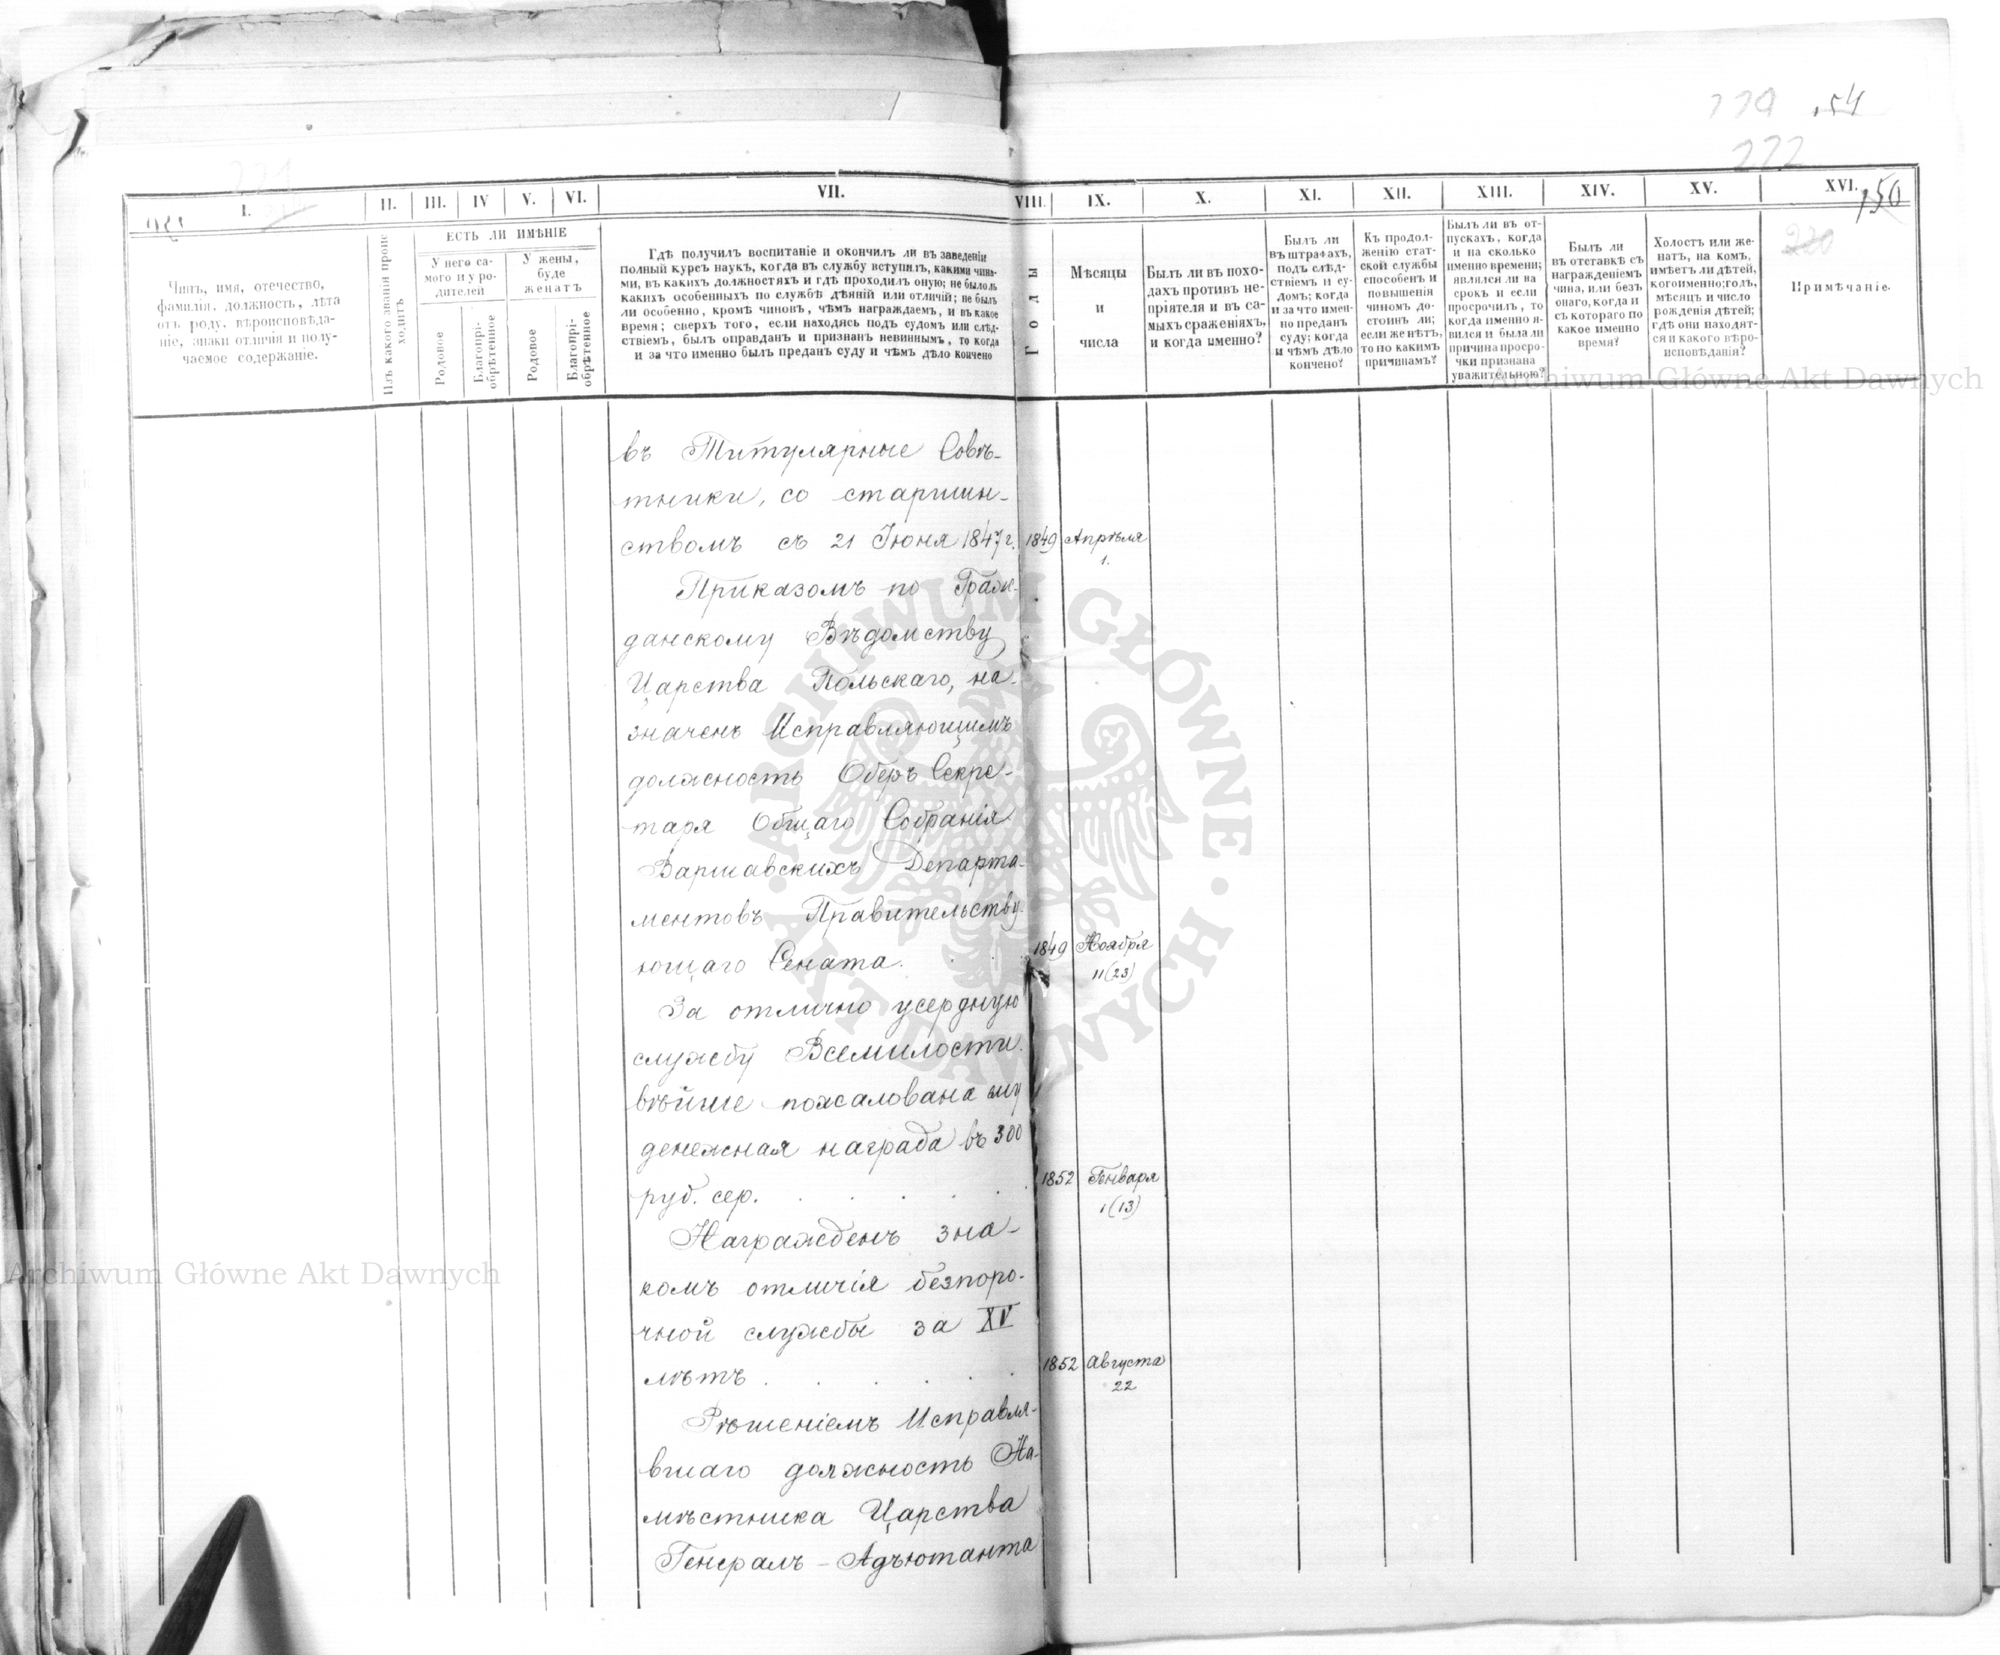 154
222
I.
II.
III.
IV
V.
VI.
VII.
VIII.
IX.
X.
XI.
XII.
XIII.
XIV.
XV.
XVI.
150
220
Чинъ, имя, отечество,
фамилія, должность, лѣта
отъ роду, вѣроисповѣда-
ніе, знаки отличія и полу-
чаемое содержаніе.
Изъ какого званія проис
ходитъ
ЕСТЬ ЛИ ИМѢНІЕ
У него са-
мого и у ро-
дителей
У жены,
буде
женатъ
Родовое
Благопрі-
обрѣтенное
Родовое
Благопрі-
обрѣтенное
Гдѣ получилъ воспитаніе и окончилъ ли въ заведеніи
полный курсъ наукъ, когда въ службу вступилъ, какими чина-
ми, въ какихъ должностяхъ и гдѣ проходилъ оную; не было ль
какихъ особенныхъ по службѣ дѣяній или отличій; не былъ
ли особенно, кромѣ чиновъ, чѣмъ награждаемъ, и въ какое
время; сверхъ того, если находясь подъ судомъ или слѣд-
ствіемъ, былъ оправданъ и признанъ невиннымъ, то когда
и за что именно былъ преданъ суду и чѣмъ дѣло кончено
Годы
Мѣсяцы
и
числа
Былъ ли въ похо-
дахъ противъ не-
пріятеля и въ са-
мыхъ сраженіяхъ,
и когда именно?
Былъ ли
въ штрафахъ,
подъ слѣд-
ствіемъ и су-
домъ; когда
и за что имен-
но преданъ
суду; когда
и чѣмъ дѣло
кончено?
Къ продол-
женію стат-
ской службы
способенъ и
повышенія
чиномъ до-
стоинъ ли;
если же нѣтъ,
то по какимъ
причинамъ?
Былъ ли въ от-
пускахъ, когда
и на сколько
именно времени;
являлся ли на
срокъ и если
просрочилъ, то
когда именно я-
вился и была ли
причина просро-
чки признана
уважительною?
Былъ ли
въ отставкѣ съ
награжденіемъ
чина, или безъ
онаго, когда и
съ котораго по
какое именно
время?
Холостъ или же-
натъ, на комъ,
имѣетъ ли дѣтей,
кого именно; годъ,
мѣсяцъ и число
рожденія дѣтей;
гдѣ они находят-
ся и какого вѣро-
исповѣданія?
Примѣчаніе.
Archiwum Główne Akt Dawnych
въ Титулярные Совѣ-
тники, со старшин-
ствомъ съ 21 Іюня 1847 г. 1849 Апрѣля
1.
Приказомъ по Граж-
данскому Вѣдомству
Царства Польскаго, на-
значенъ Исправляющимъ
должность Оберъ Секре-
таря Общаго Собранія
Варшавскихъ Департа-
ментовъ Правительству-
ющаго Сената. 1849 Ноября
11(23)
За отлично усердную
службу Всемилости-
вѣйше пожалована ему
денежная награда въ 300
руб. сер. 1852 Генваря
1(13)
Награжденъ зна-
комъ отличія безпоро-
чной службы за XV
лѣтъ . . . . . . 1852 Августа
22
Рѣшеніемъ Исправля-
вшаго должность На-
мѣстника Царства
Генералъ-Адъютанта
Archiwum Główne Akt Dawnych
ARCHIWUM GŁÓWNE · AKT DAWNYCH ·